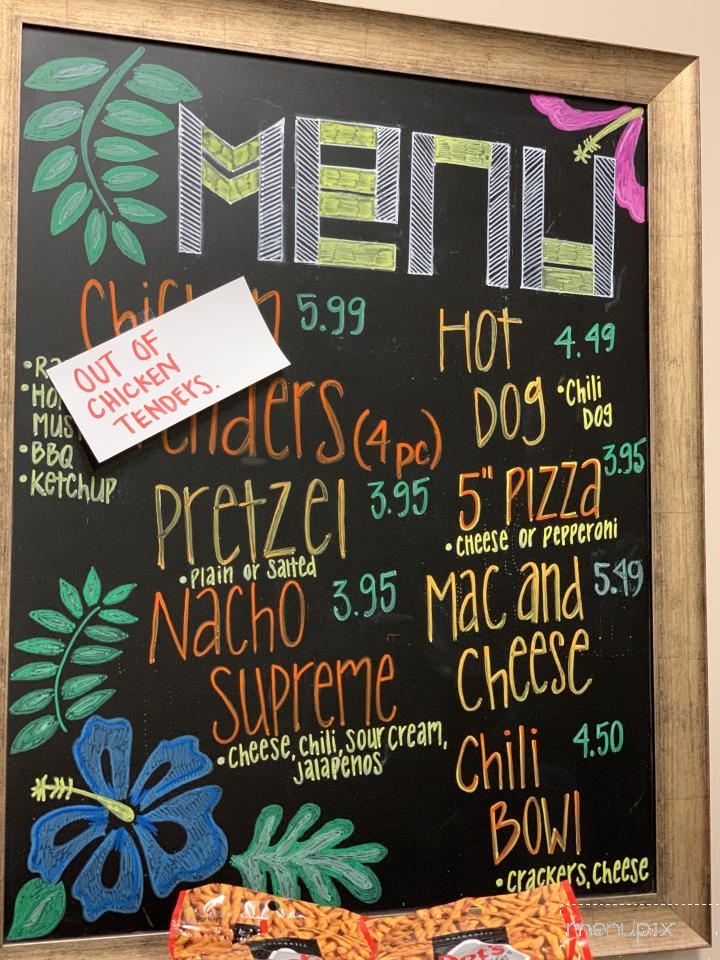 MENU
5.99
OUT OF
CHICKEN
TENDERS.
(4pc)
• BBQ
• Ketchup
Pretzel 3.95
• Plain or salted
Nacho 3.95
Supreme
• Cheese, chili, sour cream,
jalapenos
Hot 4.49
Dog
• Chili
Dog
5" Pizza 3.95
• Cheese or Pepperoni
Mac and 5.49
Cheese
Chili 4.50
Bowl
• crackers, cheese
AUTHENTIC
Dot's
menupix